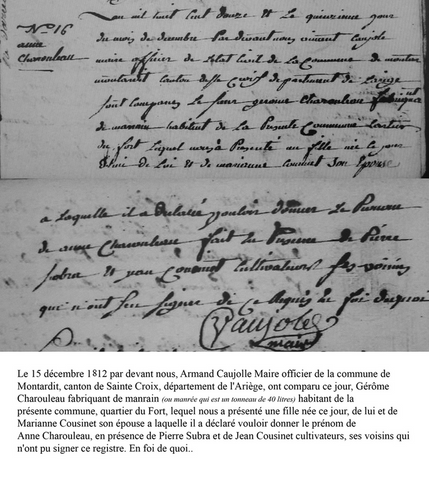 No 16
anne
Charouleau
L'an mil huit cent douze et le quinzieme jour
du mois de decembre Par devant nous vincent Caujole
maire officier de l'etat civil de La Commune de
canton de Ste Croix departement de L'ariege
sont comparus Le sieur gerome Charouleau
de habitant de La Presente Commune
du fort Lequel nous a Presenté un fille née Le jour
de Lui et de marianne Son Epouse
a Laquelle il a declaré vouloir donner Le Prenom
de anne Charouleau fait en Presence de Pierre
subra et jean Cousinet Cultivateurs Ses voisins
qui n'ont Seu signer de ce Requis en foi de quoi
Caujole
maire
Le 15 décembre 1812 par devant nous, Armand Caujolle Maire officier de la commune de
Montardit, canton de Sainte Croix, département de l'Ariège, ont comparu ce jour, Gérôme
Charouleau fabriquant de manrain (ou manrée qui est un tonneau de 40 litres) habitant de la
présente commune, quartier du Fort, lequel nous a présenté une fille née ce jour, de lui et de
Marianne Cousinet son épouse a laquelle il a déclaré vouloir donner le prénom de
Anne Charouleau, en présence de Pierre Subra et de Jean Cousinet cultivateurs, ses voisins qui
n'ont pu signer ce registre. En foi de quoi..